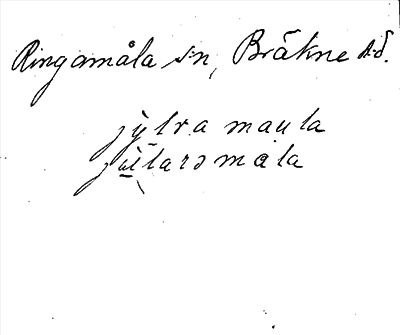 Ringamåla sn, Bräkne hd.
jylra maula
jutlarə måla